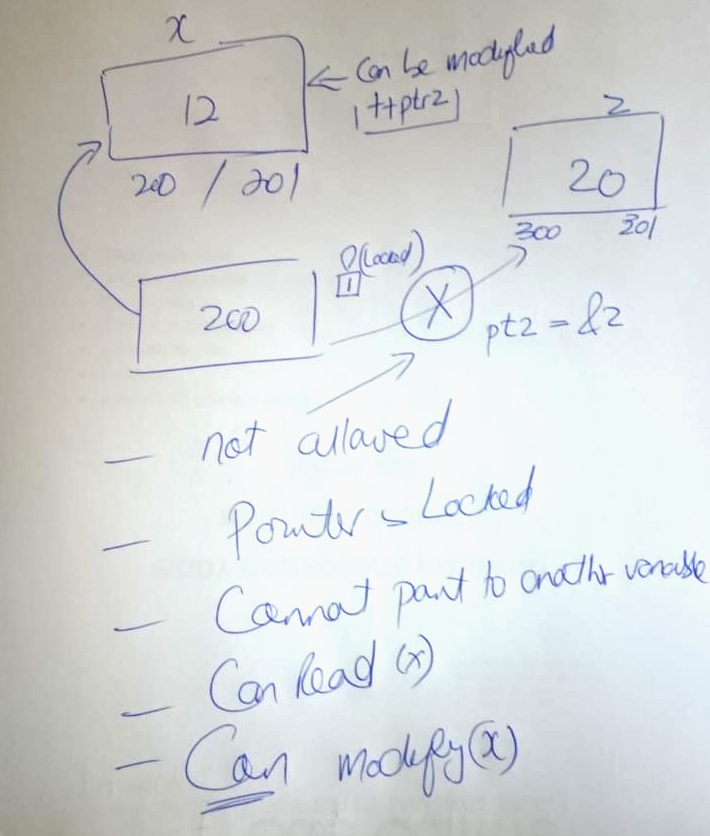 x
12
← Can be modified
++ptr2
200 / 201
2
20
300 301
(Locked)
1
200
X
pt2 = &2
— not allowed
— Pointer is Locked
— Cannot point to another variable
— Can Read (x)
— Can modify (x)